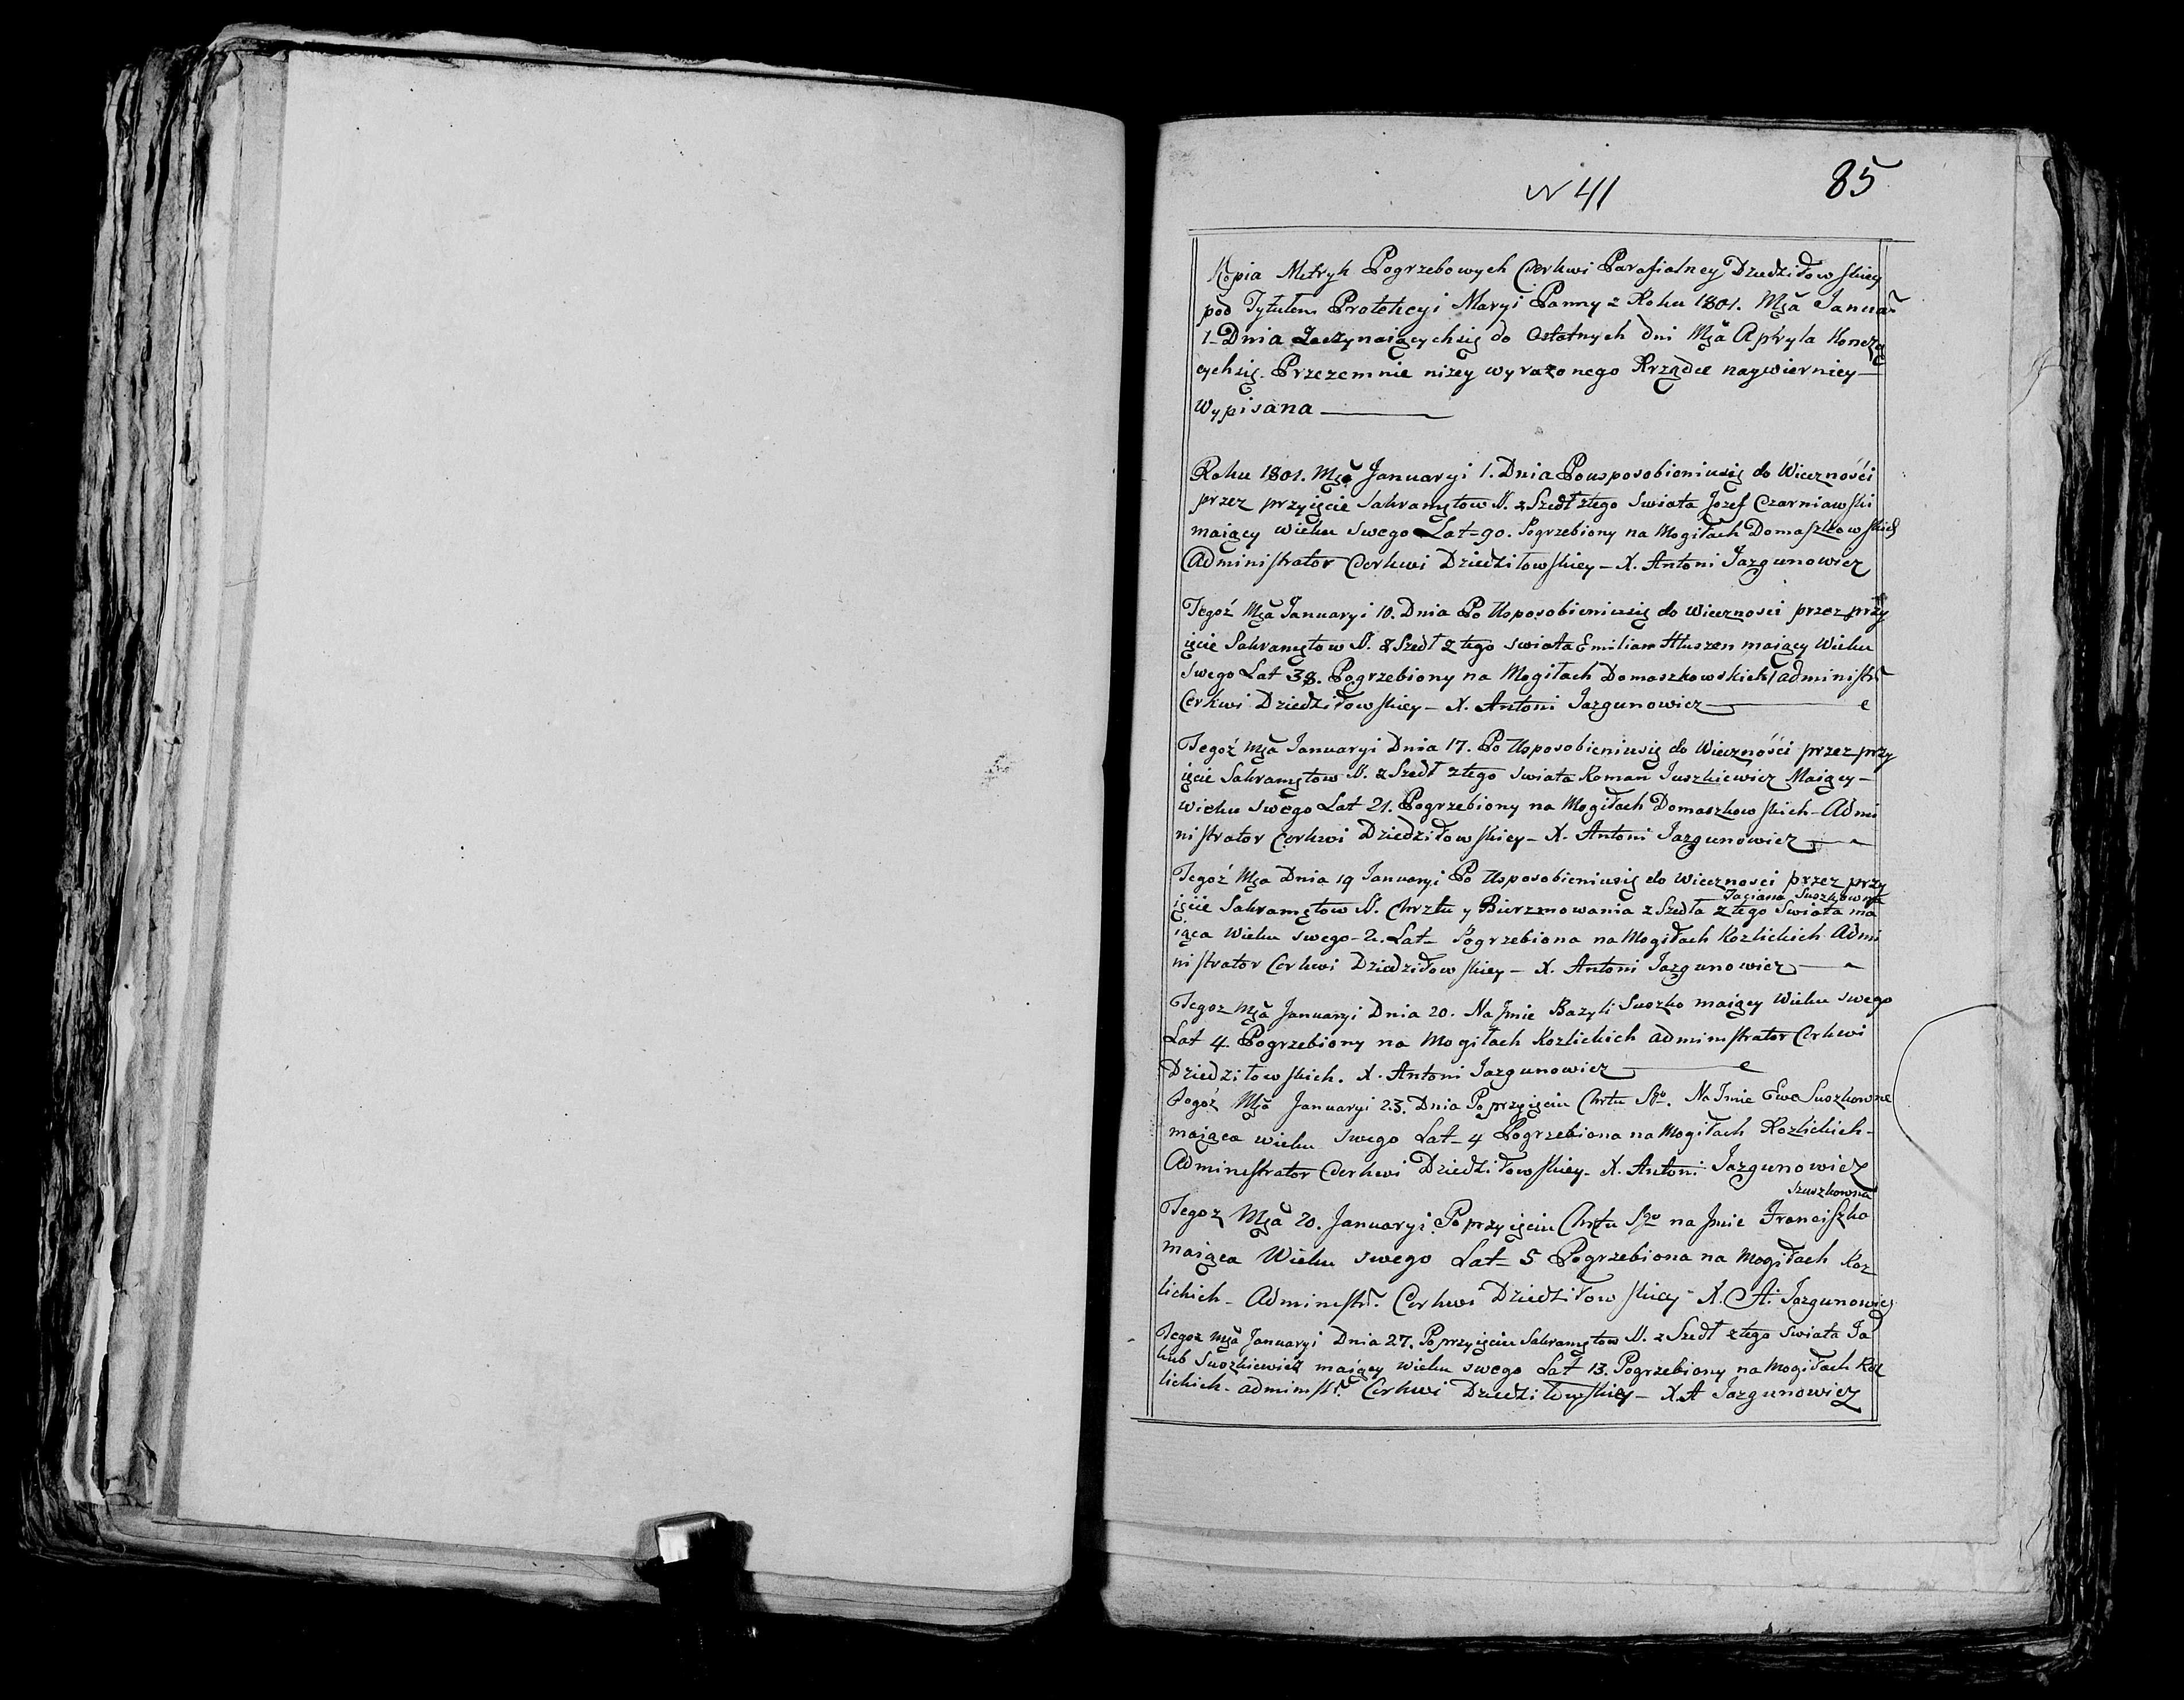 N 41
85
Kopia Metryk Pogrzebowych Cerkwi Parafialney Dziedziłowskiey
pod Tytułem Protekcyi Maryi Panny z Roku 1801. Mca Januar
1 Dnia Zaczynaiącychsię do Ostatnych dni Mca Apryla Koncza
cychsię. Przezemnie nizey wyrażonego Rządce naywierniey
Wypisana
Roku 1801. Mca Januaryi 1. Dnia Pousposobieniusię do Wieczności
przez przyięcie Sakramętow N. z Szedł ztego Swiata Jozef Czarniawski
maiący wieku swego Lat 90. Pogrzebiony na Mogiłach Domaszkowskich
Administrator Cerkwi Dziedziłowskiey - X. Antoni Jazgunowicz
Tegoż Mca Januaryi 10. Dnia Po Usposobieniusię do Wiecznosci przez przy
ięcie Sakramętow N. z Szedł z tego swiata Emilian Hluszen maiący Wieku
swego Lat 38. Pogrzebiony na Mogiłach Domaszkowskich administr
Cerkwi Dziedziłowskiey - X. Antoni Jazgunowicz
Tegoż Mca Januaryi Dnia 17. Po Usposobieniusię do Wieczności przez przy
ięcie Sakramętow N. z Szedł ztego swiata Roman Juszkiewicz Maiący -
Wieku swego Lat 21. Pogrzebiony na Mogiłach Domaszkowskich - Admi
nistrator Cerkwi Dziedziłowskiey - X. Antoni Jazgunowicz
Tegoż Mca Dnia 19 Januaryi Po Usposobieniusię do Wiecznosci przez przy
Taciana Suszkowna
ięcie Sakramętow N. Chrztu y Bierzmowania z Szedła z tego Swiata ma
iąca Wieku swego - 2. Lat - Pogrzebiona na Mogiłach Kozlickich Admi
nistrator Cerkwi Dziedziłowskiey - X. Antoni Jazgunowicz
Tegoz Mca Januaryi Dnia 20. Na Jmie Bazyli Suszko maiący Wieku swego
Lat 4. Pogrzebiony na Mogiłach Kozlickich administrator Cerkwi
Dziedziłowskich. X. Antoni Jazgunowicz
Tegoż Mca Januaryi 23. Dnia Po przyięciu Chrtu Sgo. Na Jmie Ewa Suszkowna
maiąca wieku swego Lat - 4 Pogrzebiona na Mogiłach Kozlickich -
Administrator Cerkwi Dziedziłowskiey - X. Antoni Jazgunowicz
Szuszkowna
Tegoz Mca 20. Januaryi Po przyięciu Chrtu Sgo na Jmie Franciszka
maiąca Wieku swego Lat - 5 Pogrzebiona na Mogiłach Koz
lickich - Administr. Cerkwi Dziedziłowskiey X. A. Jazgunowicz
Tegoz Mca Januaryi Dnia 27. Po przyięciu Sakramętow N. z Szedł ztego Swiata Ja
kub Suszkiewicz maiący wieku swego Lat 13. Pogrzebiony na Mogiłach Koz
lickich - administr. Cerkwi Dziedziłowskiey - X. A Jazgunowicz